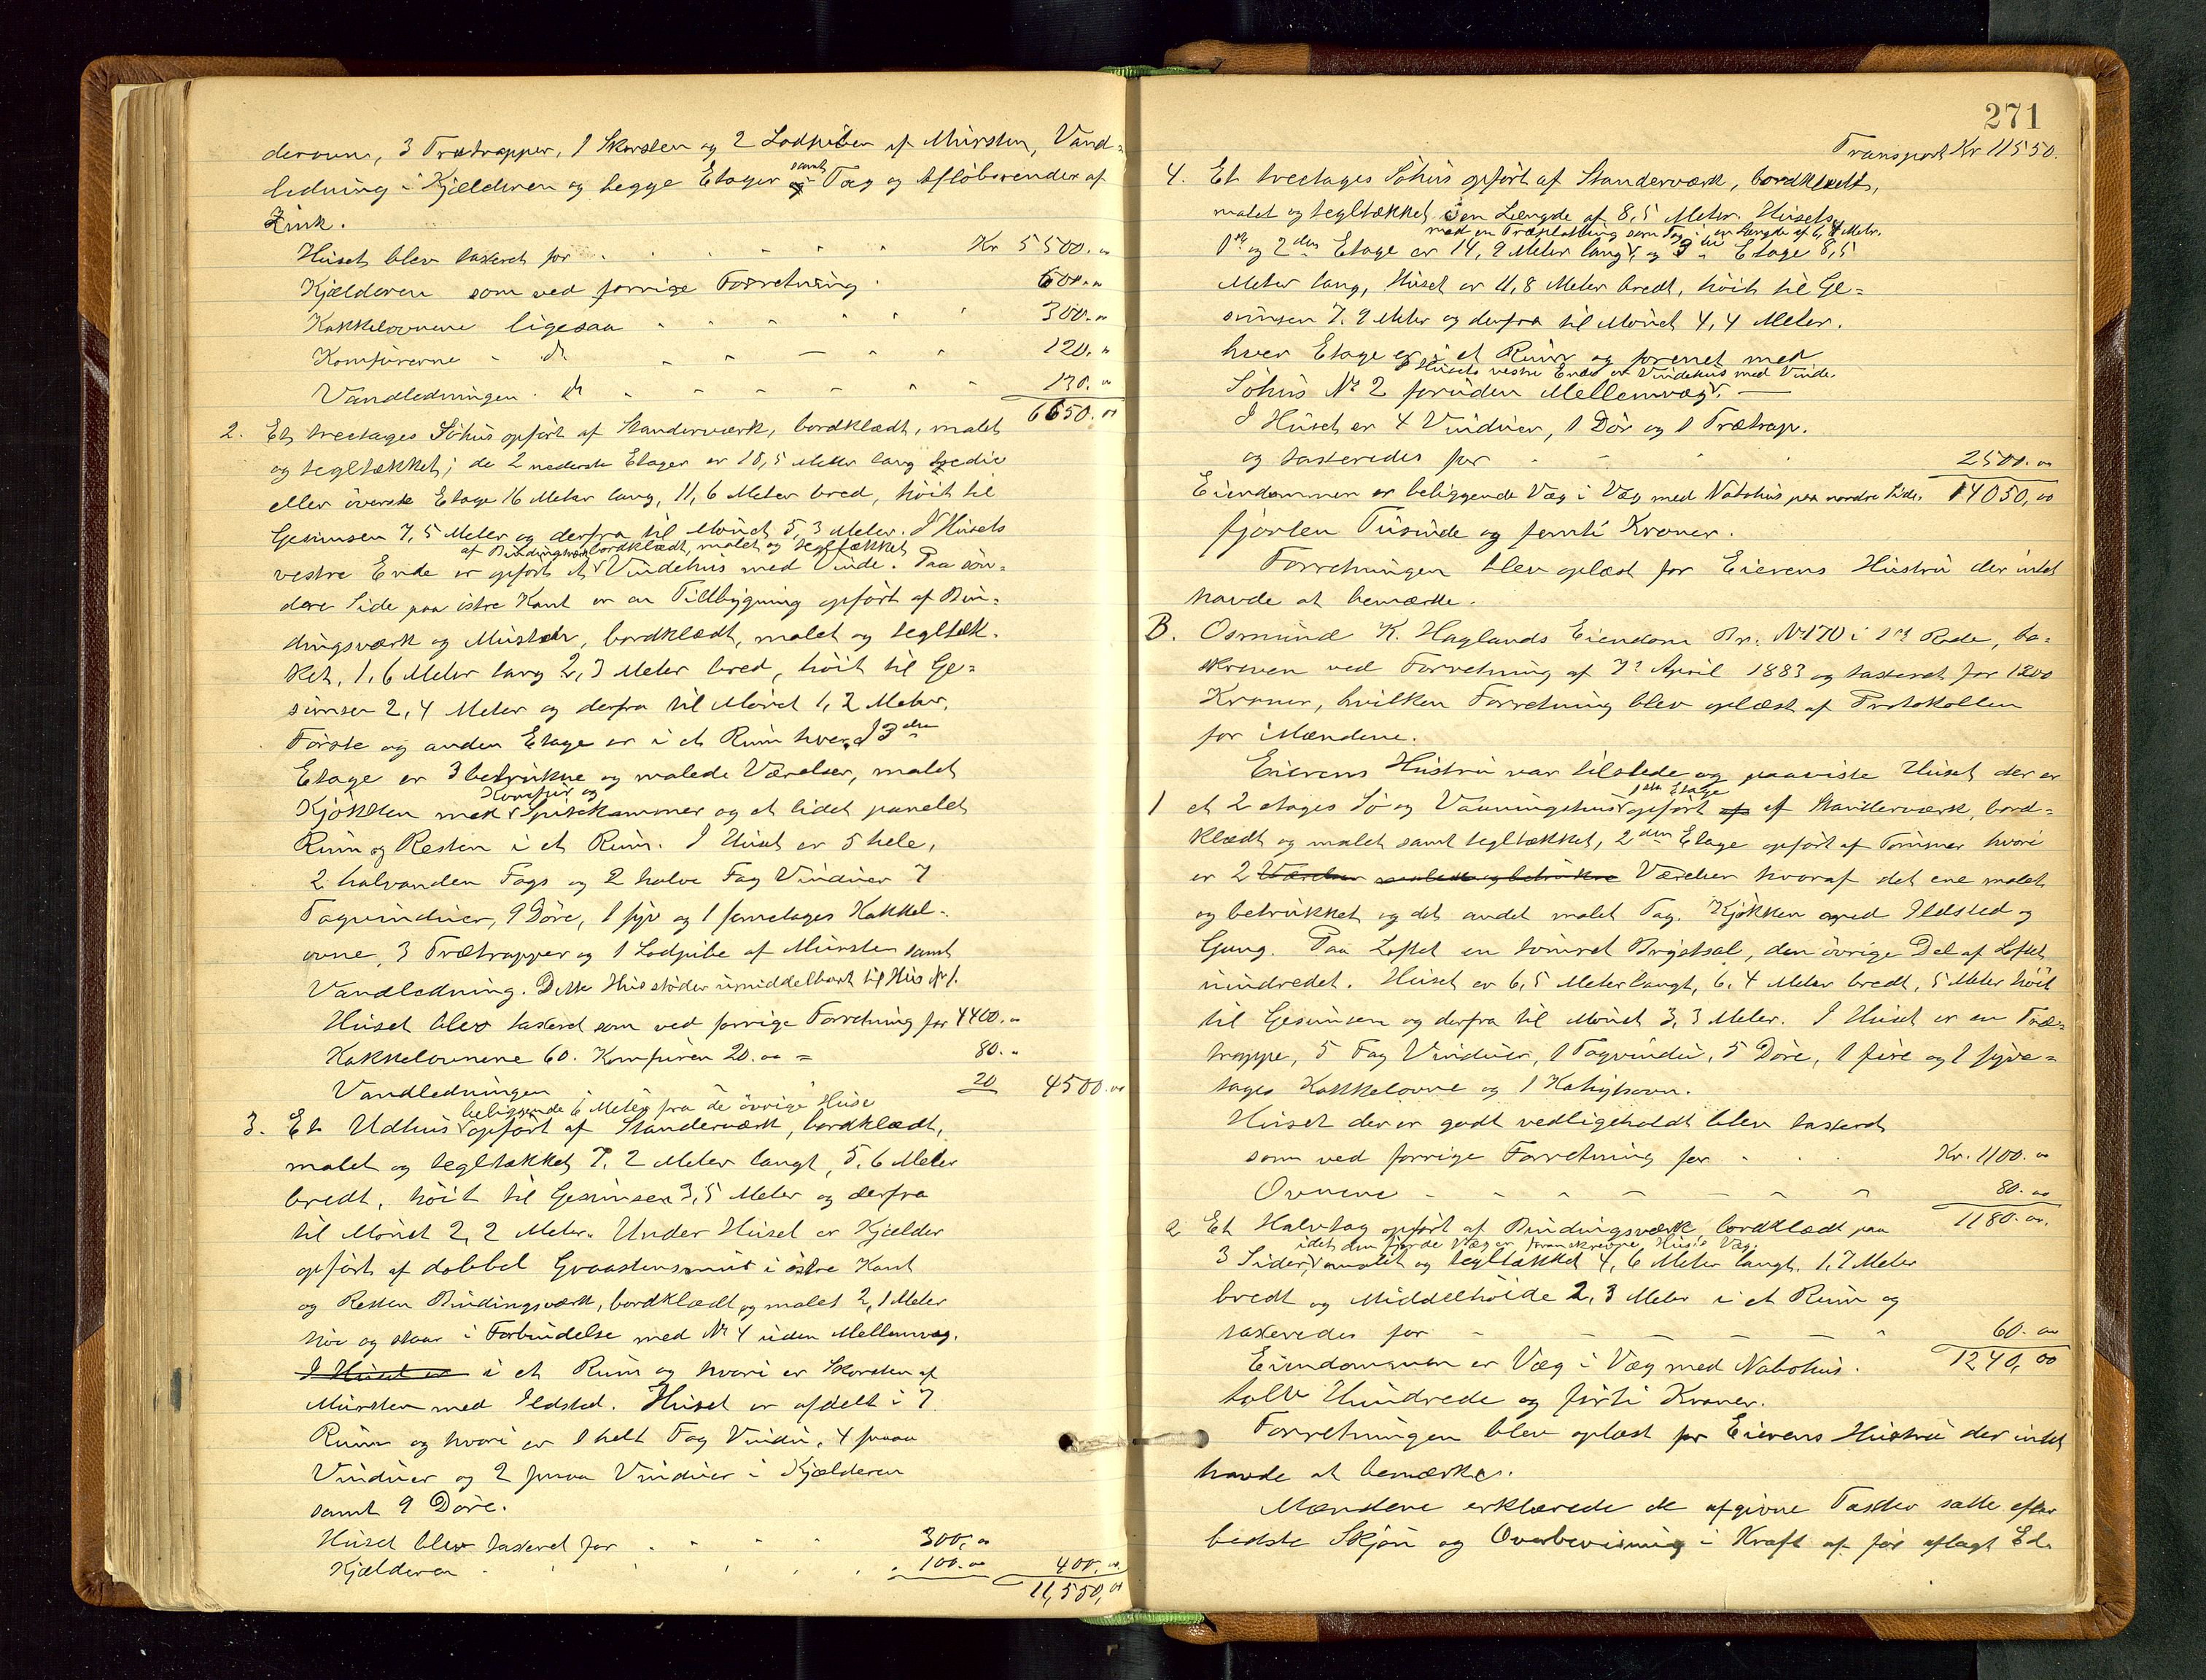 derovne, 3 Trætrapper, 1 Skorsten og 2 Lodpiber af Mursten, Vand-
ledning i Kjælderen og begge Etager samt Tag og Afløbsrender af
Zink.
Huset blev taxeret for Kr 5500.00
Kjælderen som ved forrige Forretning 600.00
Kakkelovnene ligesaa 300.00
Komfurerne do 120.00
Vandledningen do 130.00
6650.00
2. Et treetages Søhus opført af Standerværk, bordklædt, malet
og tegltækket; de 2 nederste Etager er 18,5 Meter lang tredie
eller øverste Etage 16 Meter lang, 11,6 Meter bred, høit til
Gesimsen 7,5 Meter og derfra til Mønet 5,3 Meter. I Husets
af Bindingsværk bordklædt, malet og tegltækket
vestre Ende er opført et Vindehus med Vinde. Paa søn-
dere Side paa østre Kant er en Tilbygning opført af Bin-
dingsværk og Mursten, bordklædt, malet og tegltæk-
ket, 1,6 Meter lang 2,3 Meter bred, høit til Ge-
simsen 2,4 Meter og derfra til Mønet 1,2 Meter.
Første og anden Etage er i et Rum hver. I 3die
Etage er 3 betrukne og malede Værelser, malet
Komfur og
Kjøkken med Spisekammer og et lidet panelet
Rum og Resten i et Rum. I Huset er 5 hele,
2 halvanden Fags og 2 halve Fag Vinduer 7
Tagvinduer, 9 Døre, 1 fyr og 1 femetages Kakkel-
ovne, 3 Trætrapper og 1 Lodpibe af Mursten samt
Vandledning. Dette Hus støder umiddelbart til Hus No 1.
Huset blev taxeret som ved forrige Forretning for 4400.00
Kakkelovnene 60. Komfuren 20.00 = 80.00
Vandledningen 20 4500.00
beliggende 6 Meter fra de øvrige Huse
3. Et Udhus opført af Standerværk, bordklædt,
malet og tegltækket 7,2 Meter langt, 5,6 Meter
bredt, høit til Gesimsen 3,5 Meter og derfra
til Mønet 2,2 Meter. Under Huset er Kjælder
opført af dobbel Graastensmur i østre Kant
og Resten Bindingsværk, bordklædt og malet 2,1 Meter
høi og staar i Forbindelse med No 4 uden Mellemvæg.
I Huset er i et Rum og hvori er Skorsten af
Mursten med Ildsted. Huset er afdelt i 7
Rum og hvori er 1 helt Fag Vindu, 4 smaa
Vinduer og 2 smaa Vinduer i Kjælderen
samt 9 Døre.
Huset blev taxeret for 300,00
Kjælderen 100.00 400.00
11,550,00
271
Transport Kr 11550.
4. Et treetages Søhus opført af Standerværk, bordklædt,
malet og tegltækket i en Længde af 8,5 Meter. Husets
med en Træplatning som Tag i en Længde af 6,4 Meter.
1ste og 2den Etage er 14,9 Meter lang, og 3die Etage 8,5
Meter lang, Huset er 11,8 Meter bredt, høit til Ge-
simsen 7,9 Meter og derfra til Mønet 4,4 Meter.
hver Etage er i et Rum og forenet med
I Husets vestre Ende er Vindehus med Vinde.
Søhus No 2 foruden Mellemvæg.
I Huset er 4 Vinduer, 1 Dør og 1 Trætrap.
og taxeredes for 2500.00
Eiendommen er beliggende Væg i Væg med Nabohus paa nordre Side. 14050,00
fjorten Tusinde og femti Kroner.
Forretningen blev oplæst for Eierens Hustru der intet
havde at bemærke.
B. Osmund K. Haglands Eiendom Br. No 170 i 1ste Rode, be-
skreven ved Forretning af 7de April 1883 og taxeret for 1200
Kroner, hvilken Forretning blev oplæst af Protokollen
for Mændene.
Eierens Hustru var tilstede og paaviste Huset der er
1ste Etage
1 et 2 etages Sø og Vaaningshus opført af af Standerværk, bord-
klædt og malet samt tegltækket, 2den Etage opført af Tømmer hvori
er 2 Værelser malede og betrukne Værelser hvoraf det ene malet
og betrukket og det andet malet Tag. Kjøkken med Ildsted og
Gang. Paa Loftet en tømret Brystsal, den øvrige Del af Loftet
uindredet. Huset er 6,5 Meter langt, 6,4 Meter bredt, 5 Meter høit
til Gesimsen og derfra til Mønet 3,3 Meter. I Huset er en Træ-
trappe, 5 Fag Vinduer, 1 Tagvindu, 5 Døre, 1 fire og 1 fyre-
tages Kakkelovne og 1 Kahytsovn.
Huset der er godt vedligeholdt blev taxeret
som ved forrige Forretning for Kr. 1100.00
Ovnene 80.00
1180.00.
2 Et Halvtag opført af Bindingsværk bordklædt paa
idet den fjerde Væg er foranskrevne Huses Væg
3 Sider, malet og tegltækket 4,6 Meter langt, 1,7 Meter
bredt og Middelhøide 2,3 Meter i et Rum og
taxeredes for 60.00
Eiendommen er Væg i Væg med Nabohus. 1240,00
tolv Hundrede og førti Kroner.
Forretningen blev oplæst for Eierens Hustru der intet
havde at bemærke.
Mændene erklærede de afgivne Taxter satte efter
bedste Skjøn og Overbevisning i Kraft af før aflagt Ed.